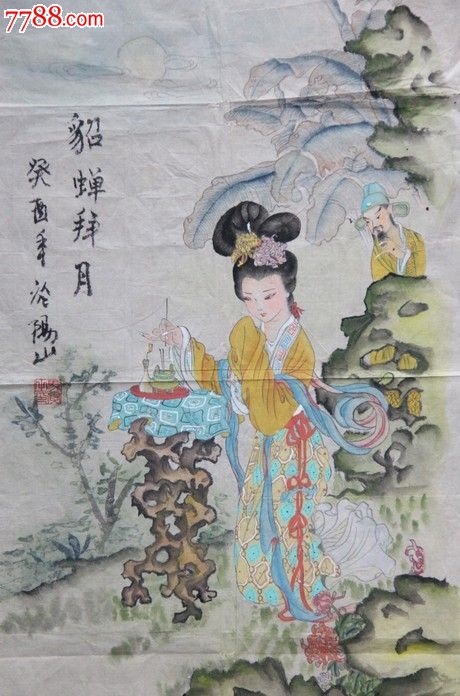 7788.com
貂蝉拜月
癸酉年
山